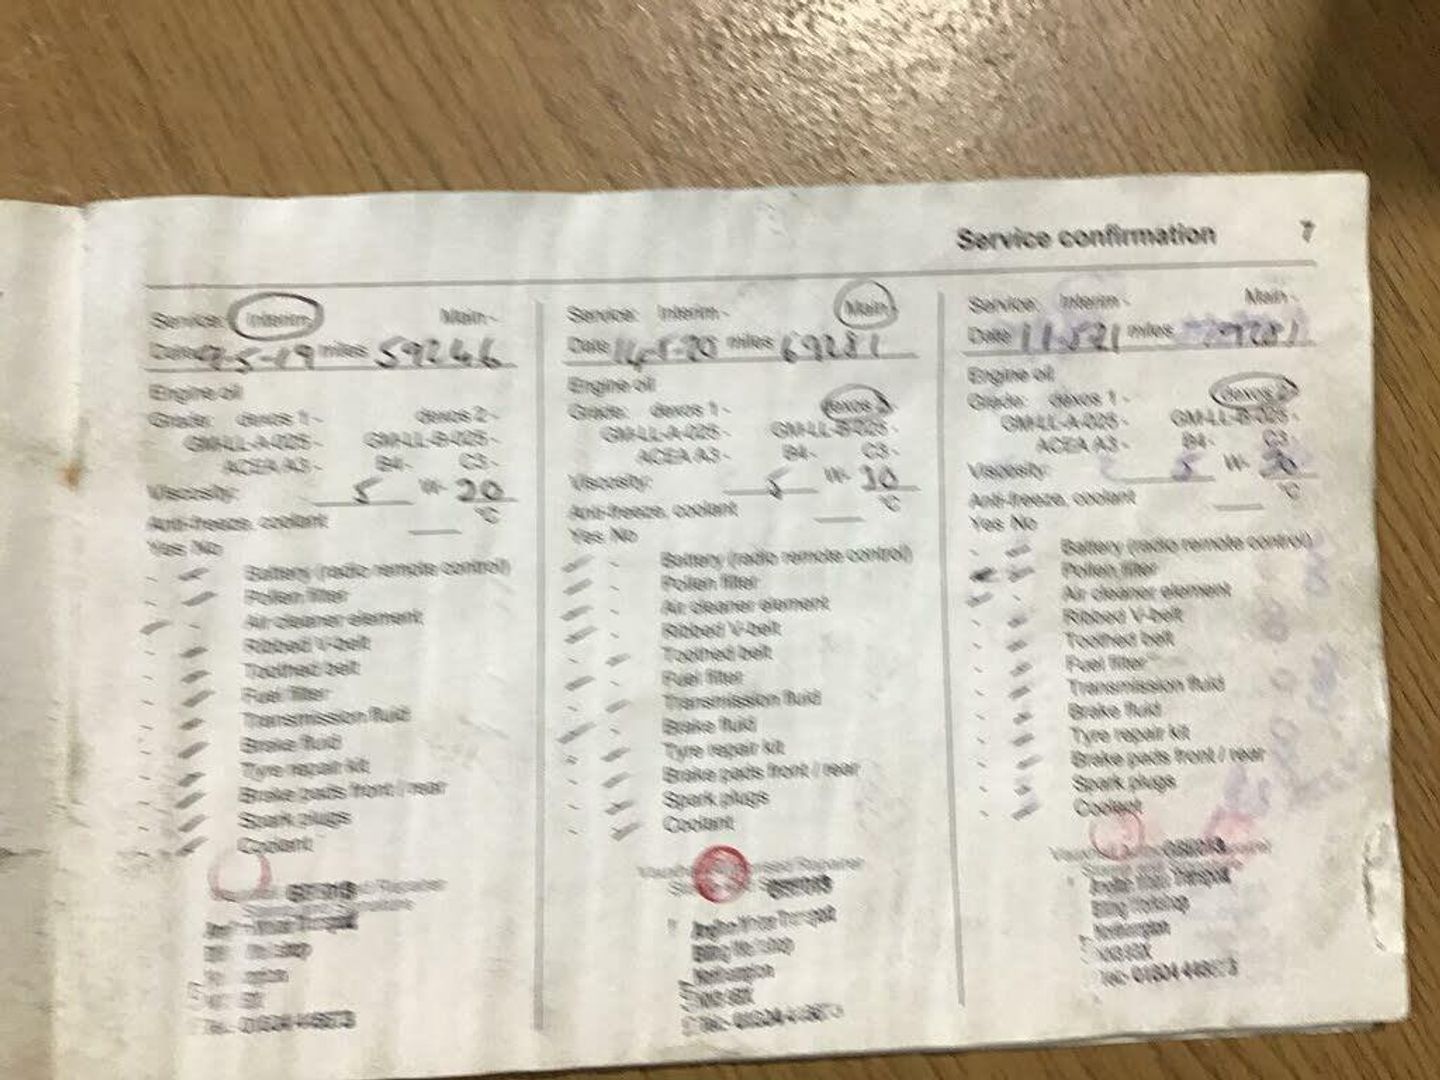 Service confirmation 7
Service: Interim - Main -
Date 9-5-19 miles 59246
Engine oil
Grade: dexos 1 - dexos 2 -
GM-LL-A-025 - GM-LL-B-025 -
ACEA A3 - B4 - C3 -
Viscosity: 5 W- 20
Anti-freeze, coolant °C
Yes No
Battery (radio remote control)
Pollen filter
Air cleaner element
Ribbed V-belt
Toothed belt
Fuel filter
Transmission fluid
Brake fluid
Tyre repair kit
Brake pads front / rear
Spark plugs
Coolant
Service: Interim - Main -
Date miles 69281
Engine oil
Grade: dexos 1 - dexos 2
GM-LL-A-025 - GM-LL-B-025 -
ACEA A3 - B4 - C3 -
Viscosity: 5 W-
Anti-freeze, coolant °C
Yes No
Battery (radio remote control)
Pollen filter
Air cleaner element
Ribbed V-belt
Toothed belt
Fuel filter
Transmission fluid
Brake fluid
Tyre repair kit
Brake pads front / rear
Spark plugs
Coolant
Service: Interim - Main -
Date 11-5-21 miles
Engine oil
Grade: dexos 1 - dexos 2
GM-LL-A-025 - GM-LL-B-025 -
ACEA A3 - B4 - C3
Viscosity: 5 W-
Anti-freeze, coolant °C
Yes No
Battery (radio remote control)
Pollen filter
Air cleaner element
Ribbed V-belt
Toothed belt
Fuel filter
Transmission fluid
Brake fluid
Tyre repair kit
Brake pads front / rear
Spark plugs
Coolant